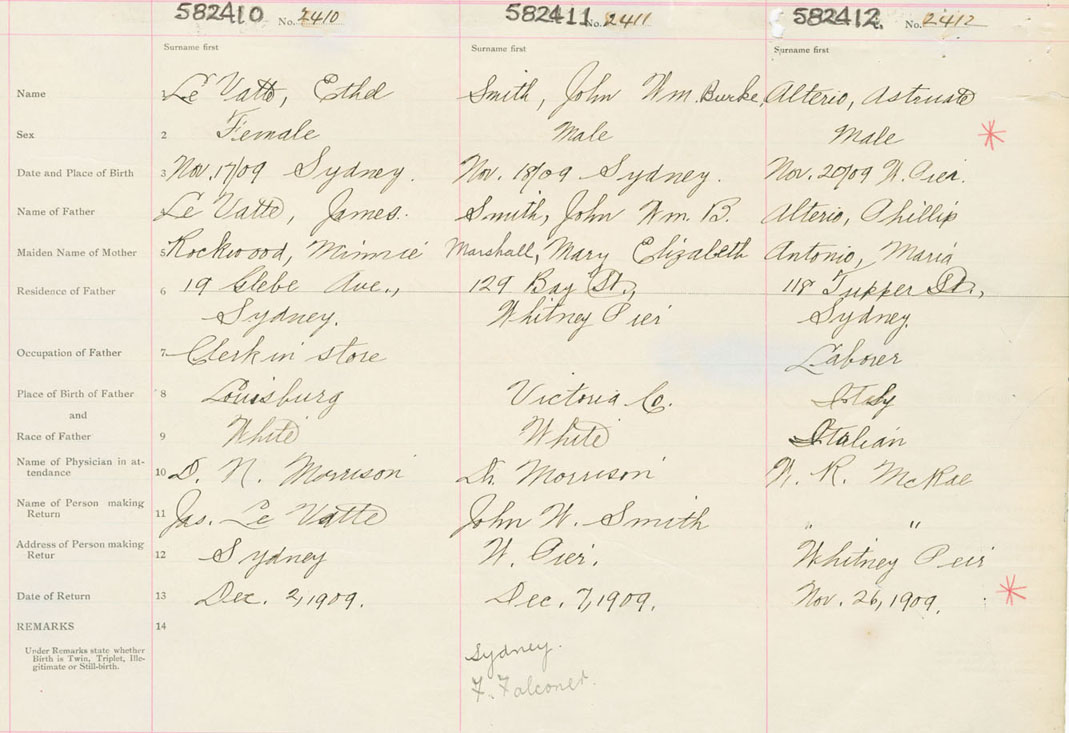 582410 No. 2410 582411 No. 2411 582412 No. 2412
Surname first Surname first Surname first
Name 1 Le Vatte, Ethel Smith, John Wm. Burke, Alterio, Astruate
Sex 2 Female Male Male
Date and Place of Birth 3 Nov. 17/09 Sydney. Nov. 18/09 Sydney. Nov. 20/09 W. Pier.
Name of Father 4 Le Vatte, James. Smith, John Wm. B. Alterio, Phillip
Maiden Name of Mother 5 Rockwood, Minnie Marshall, Mary Elizabeth Antonio, Maria
Residence of Father 6 19 Glebe Ave., 129 Bay St., 118 Tupper St.,
Sydney. Whitney Pier Sydney.
Occupation of Father 7 Clerk in store Laborer
Place of Birth of Father 8 Louisburg Victoria Co. Italy
and
Race of Father 9 White White Italian
Name of Physician in at-
tendance 10 D. N. Morrison Dr. Morrison W. R. McRae
Name of Person making
Return 11 Jas. Le Vatte John W. Smith " "
Address of Person making
Retur 12 Sydney W. Pier. Whitney Peir
Date of Return 13 Dec. 2, 1909. Dec. 7, 1909. Nov. 26, 1909.
REMARKS 14
Under Remarks state whether
Birth is Twin, Triplet, Ille-
gitimate or Still-birth.
Sydney.
F. Falconer.